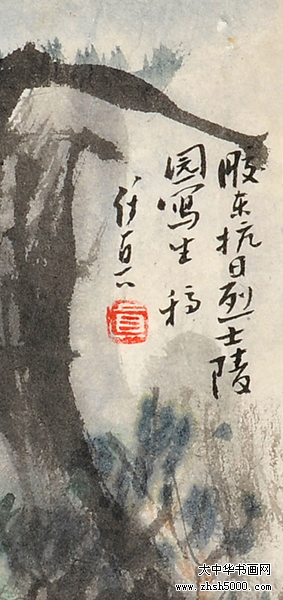 胶东抗日烈士陵
园写生稿
任
大中华书画网
www.zhsh5000.com